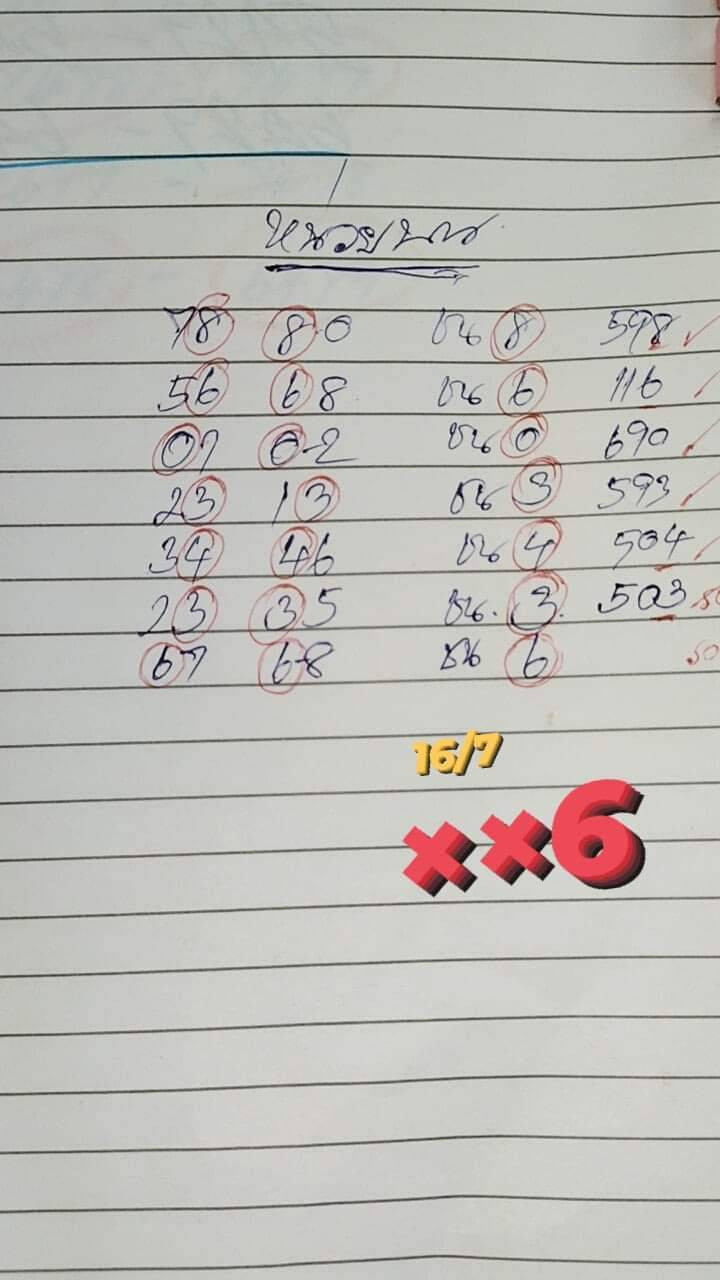 หน่วยบน
78 8-0 ชน 8 598 ✓
56 68 ชน 6 116 ✓
07 0-2 ชน 0 690 ✓
23 13 ชน 3 593 ✓
34 46 ชน 4 504 ✓
23 35 ชน. 3. 503
67 6-8 ชน 6
16/7
××6